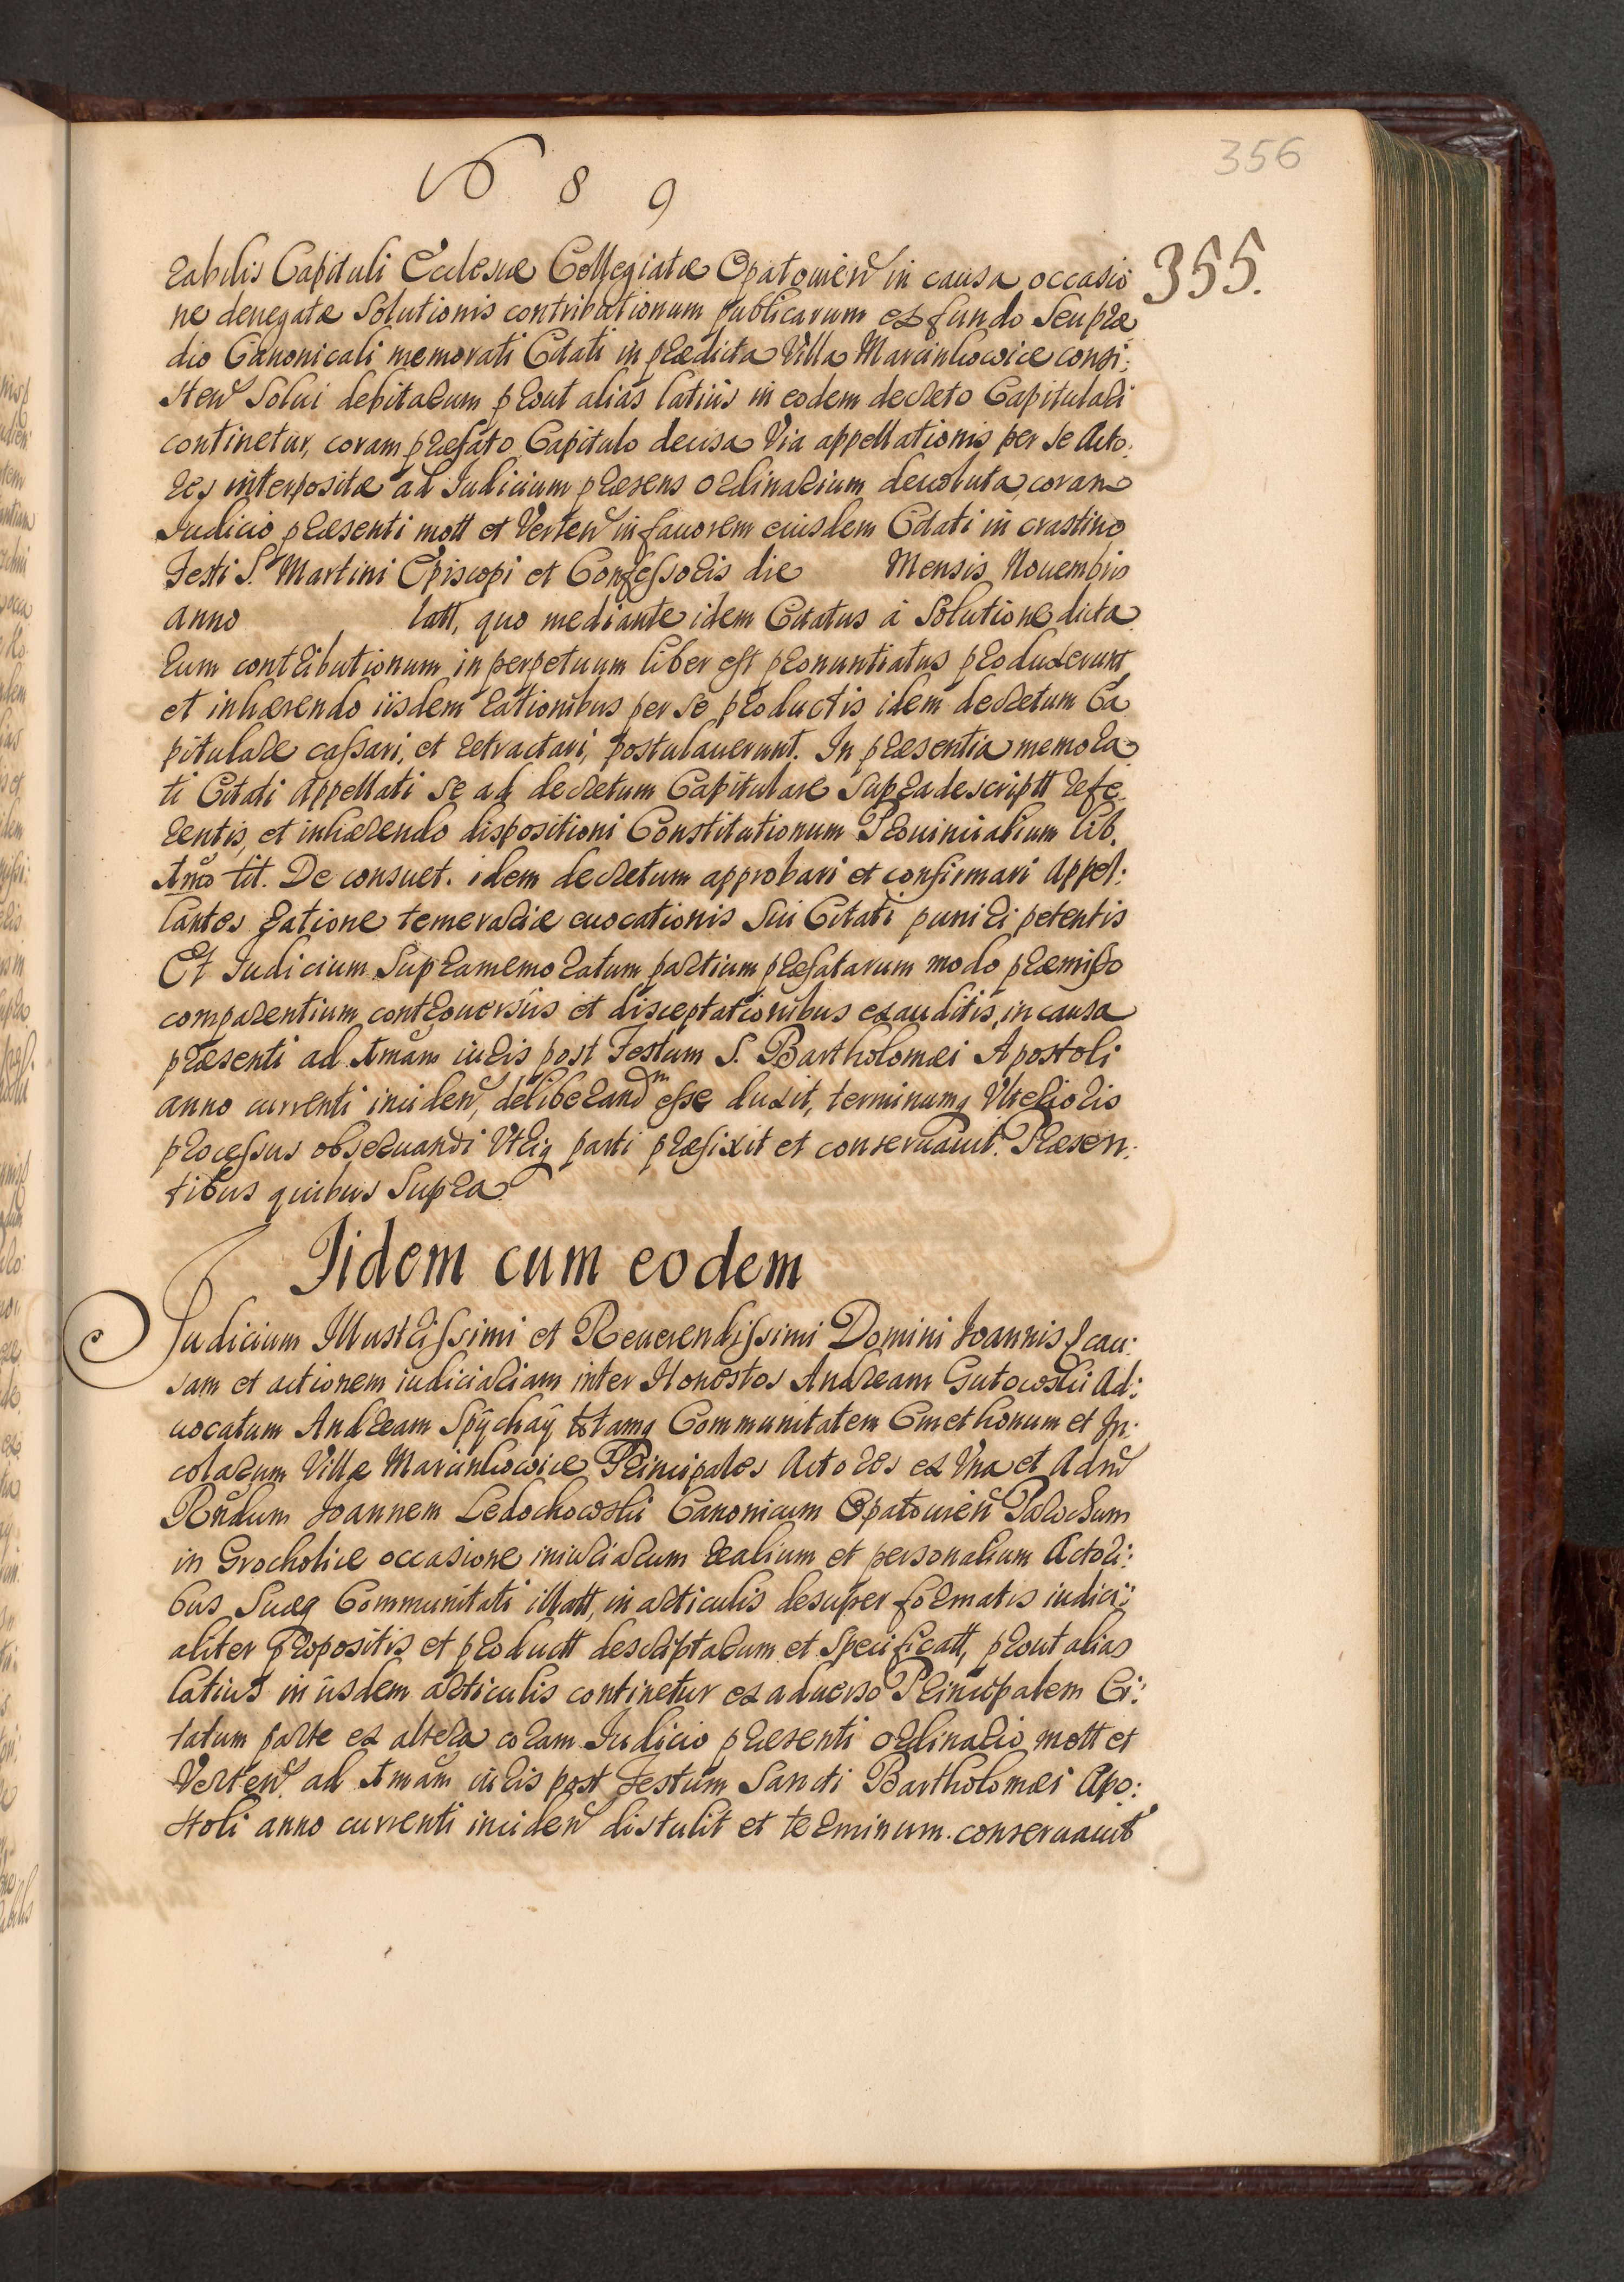 1689
356
355.
rabilis Capituli Ecclesiæ Collegiatæ Opatouien in causa occasio
ne denegatæ Solutionis contributionum publicarum ex fundo Seu præ
dio Canonicali memorati Citati in prædicta Villa Marcinkowice consi:
sten Solui debitarum prout alias latius in eodem decreto Capitulari
continetur, coram præfato Capitulo decisa Via appellationis per se Acto:
res interpositæ ad Iudicium præsens ordinarium deuoluta, coram
Iudicio præsenti mott et Verten in fauorem eiusdem Citati in crastino
Festi S. Martini Episcopi et Confessoris die Mensis Nouembris
anno latt, quo mediante idem Citatus á Solutione dicta
rum contributionum in perpetuum liber est pronuntiatus produxerunt,
et inhærendo iisdem rationibus per se productis idem decretum Ca
pitulare cassari, et retractari, postulauerunt. In præsentia memora
ti Citati Appellati se ad decretum Capitulare Supradescriptt refe
rentis, et inhærendo dispositioni Constitutionum Prouincialium lib.
Amo tit. De consuet. idem decretum approbari et confirmari Appel:
lantes ratione temerariæ euocationis Sui Citati puniri petentis
Et Iudicium Supramemoratum partium præfatarum modo præmisso
comparentium controuersiis et disceptationibus exauditis, in causa
præsenti ad Amam iuris post Festum S. Bartholomæi Apostoli
anno currenti inciden, deliberandm esse duxit, terminumq Vlterioris
processus obseruandi Vtriq parti præfixit et conseruauit. Præsen:
tibus quibus Supra
Iidem cum eodem
Iudicium Illustrissimi et Reuerendissimi Domini Ioannis & cau:
sam et actionem iudiciariam inter Honestos Andream Gutowski Ad:
uocatum Andream Spÿchaÿ totamq Communitatem Cmethonum et In:
colarum Villæ Marcinkowice Principales Actores ex Vna et Adm
Rndum Ioannem Ledochowski Canonicum Opatouien Parochum
in Grocholice occasione iniuriarum realium et personalium Actori:
bus Suæq Communitati illatt, in articulis desuper formatis iudici:
aliter propositis et productt descriptarum et Specificatt, prout alias
latius in iisdem articulis continetur ex aduerso Principalem Ci:
tatum parte ex altera coram Iudicio præsenti ordinario mott et
Verten ad Amam iuris post Festum Sancti Bartholomæi Apo:
stoli anno currenti inciden distulit et terminum conseruauit